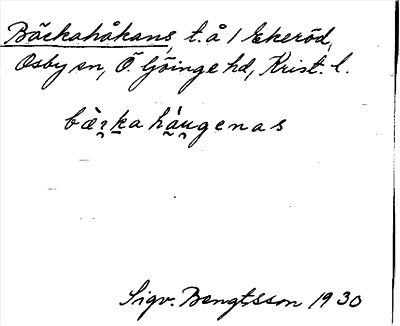 Bäckahåkans, t. å 1 Ekeröd,
Osby sn, Ö. Göinge hd, Krist. l.
bæ̀ʒ̨ka há̀u̯genas
Sigv. Bengtsson 1930